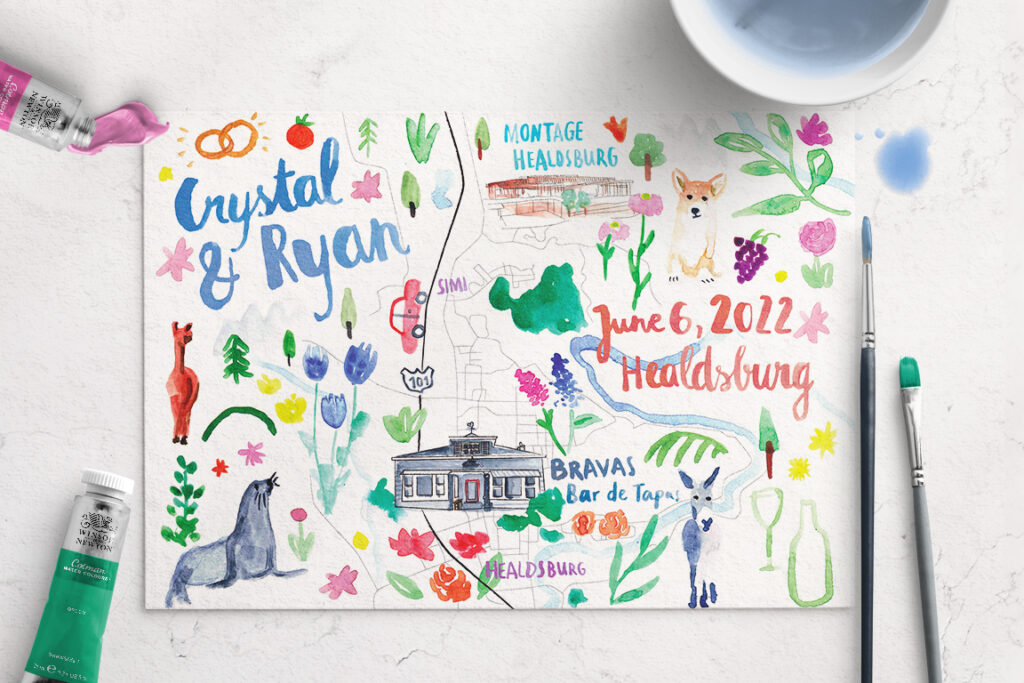 Crystal
& Ryan
MONTAGE
HEALDSBURG
SIMI
June 6, 2022
Healdsburg
101
BRAVAS
Bar de Tapas
HEALDSBURG
WINSOR
& NEWTON
WINSOR
& NEWTON
Cotman
WATER COLOURS